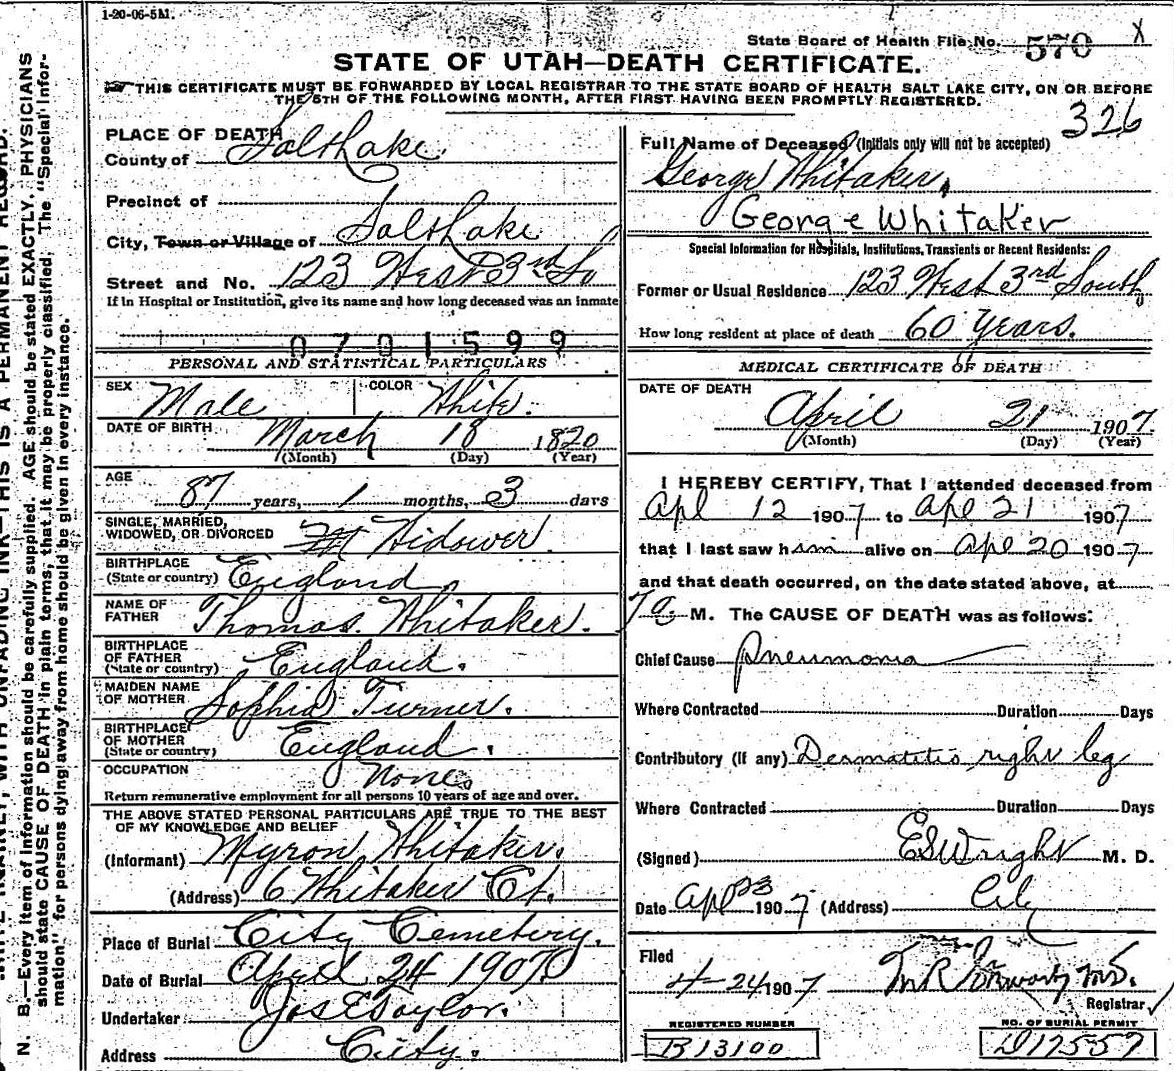 1-20-06-5M.
State Board of Health File No. 570 X
STATE OF UTAH—DEATH CERTIFICATE.
THIS CERTIFICATE MUST BE FORWARDED BY LOCAL REGISTRAR TO THE STATE BOARD OF HEALTH SALT LAKE CITY, ON OR BEFORE
THE 5TH OF THE FOLLOWING MONTH, AFTER FIRST HAVING BEEN PROMPTLY REGISTERED.
326
PLACE OF DEATH
County of Salt Lake
Precinct of
City, Town or Village of Salt Lake
Street and No. 123 West 3rd So
If in Hospital or Institution, give its name and how long deceased was an inmate
0701599
PERSONAL AND STATISTICAL PARTICULARS
SEX Male COLOR White.
DATE OF BIRTH March 18 1820
(Month) (Day) (Year)
AGE
87 years, 1 months, 3 days
SINGLE, MARRIED,
WIDOWED, OR DIVORCED Widower.
BIRTHPLACE
(State or country) England.
NAME OF
FATHER Thomas Whitaker.
BIRTHPLACE
OF FATHER
(State or country) England.
MAIDEN NAME
OF MOTHER Sophia Turner.
BIRTHPLACE
OF MOTHER
(State or country) England.
OCCUPATION None.
Return remunerative employment for all persons 10 years of age and over.
THE ABOVE STATED PERSONAL PARTICULARS ARE TRUE TO THE BEST
OF MY KNOWLEDGE AND BELIEF
(Informant) Myron Whitaker.
(Address) 6 Whitaker Ct.
Place of Burial City Cemetery.
Date of Burial April 24 1907
Undertaker Jos E Taylor.
Address City.
Full Name of Deceased (Initials only will not be accepted)
George Whitaker.
George Whitaker
Special Information for Hospitals, Institutions, Transients or Recent Residents:
Former or Usual Residence 123 West 3rd South
How long resident at place of death 60 Years.
MEDICAL CERTIFICATE OF DEATH
DATE OF DEATH
April 21 1907.
(Month) (Day) (Year)
I HEREBY CERTIFY, That I attended deceased from
Apl 12 1907 to Apl 21 1907
that I last saw him alive on Apl 20 1907
and that death occurred, on the date stated above, at
7 a. M. The CAUSE OF DEATH was as follows:
Chief Cause Pneumonia
Where Contracted Duration Days
Contributory (if any) Dermatitis right leg
Where Contracted Duration Days
(Signed) E S Wright M. D.
Date Apl 23 1907 (Address) City
Filed
4-24-1907 M.D.
Registrar
REGISTERED NUMBER
B13100
NO. OF BURIAL PERMIT
D17557
N. B.—Every item of information should be carefully supplied. AGE should be stated EXACTLY. PHYSICIANS
should state CAUSE OF DEATH in plain terms, that it may be properly classified. The "Special Infor-
mation" for persons dying away from home should be given in every instance.
WITH UNFADING INK—THIS IS A PERMANENT RECORD.